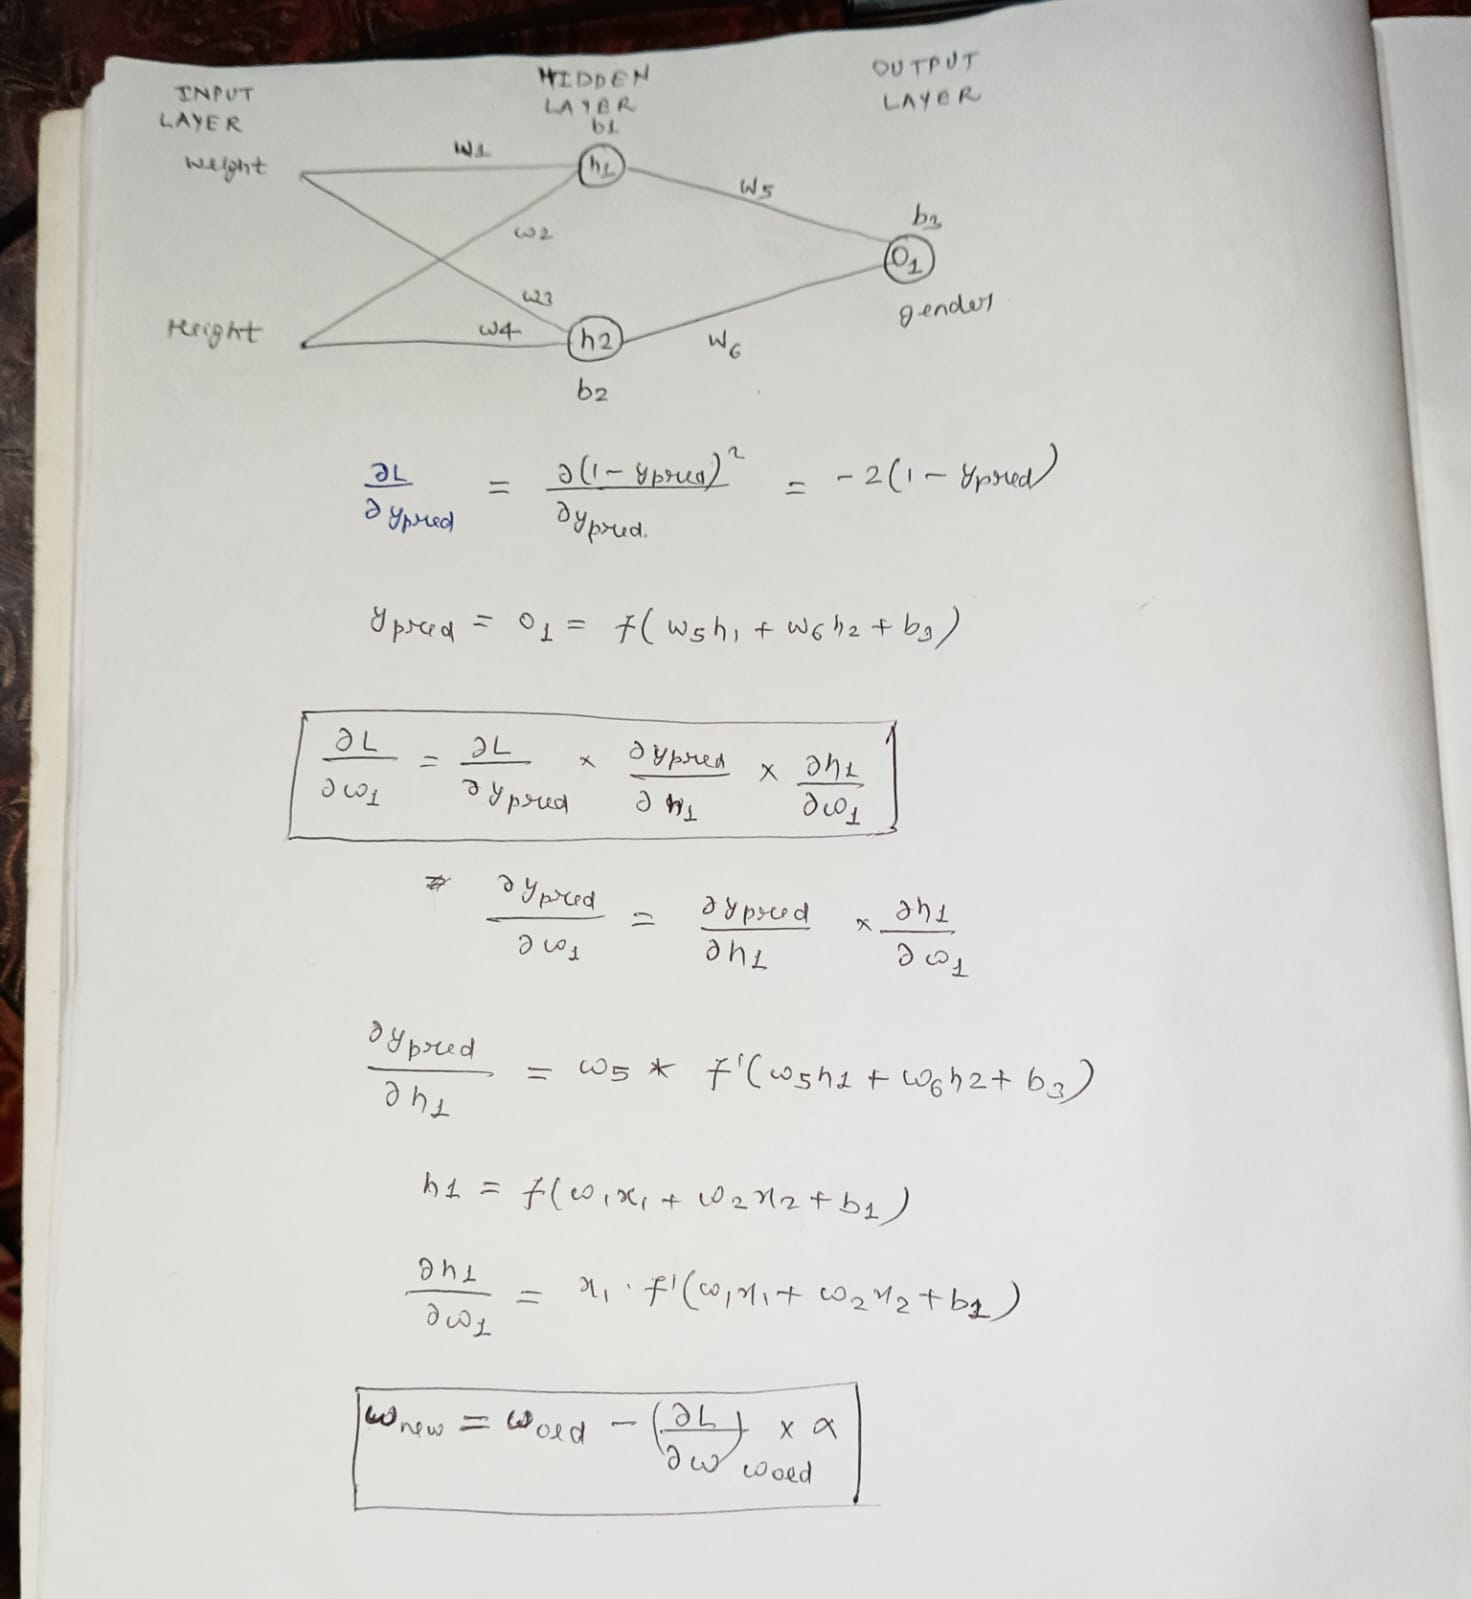 INPUT LAYER
HIDDEN LAYER
OUTPUT LAYER
b1
Weight
w1
h1
w5
w2
b3
O1
gender
w3
Height
w4
h2
w6
b2
∂L/∂ypred = ∂(1-ypred)²/∂ypred. = -2(1-ypred)
ypred = o1 = f(w5h1 + w6h2 + b3)
∂L/∂w1 = ∂L/∂ypred × ∂ypred/∂h1 × ∂h1/∂w1
* ∂ypred/∂w1 = ∂ypred/∂h1 × ∂h1/∂w1
∂ypred/∂h1 = w5 * f'(w5h1 + w6h2 + b3)
h1 = f(w1x1 + w2x2 + b1)
∂h1/∂w1 = x1 · f'(w1x1 + w2x2 + b1)
wnew = wold - (∂L/∂w)wold × α